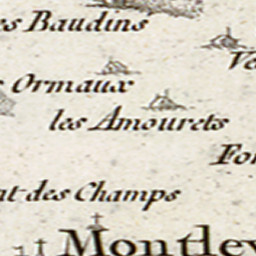 es Baudins
Ormaux
les Amourets
at des Champs
Montlev